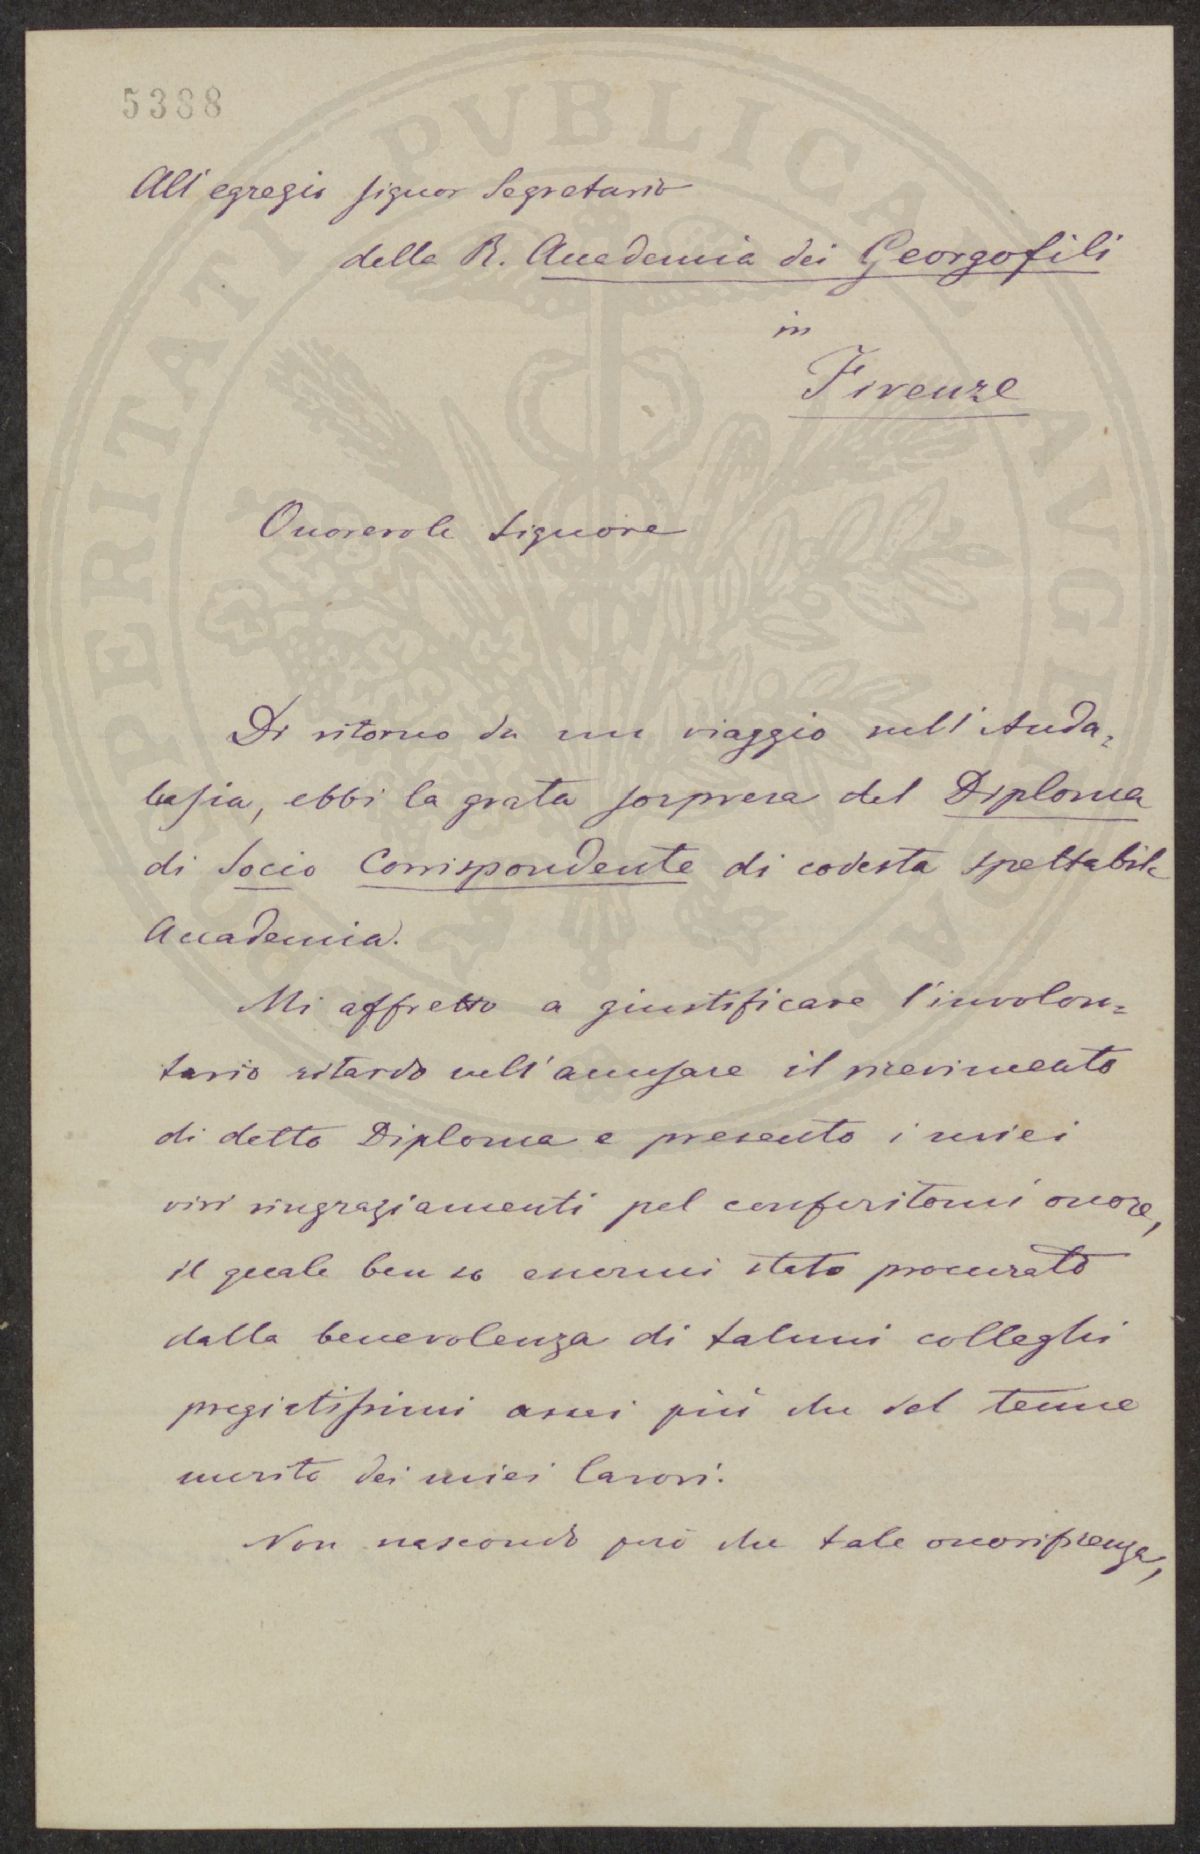 5388
All' egregio signor Segretario
della R. Accademia dei Georgofili
in
Firenze
Onorevole Signore
Di ritorno da un viaggio nell'Anda=
lusia, ebbi la grata sorpresa del Diploma
di Socio Corrispondente di codesta spettabile
Accademia.
Mi affretto a giustificare l'involon=
tario ritardo nell'accusare il ricevimento
di detto Diploma e presento i miei
vivi ringraziamenti pel conferitomi onore,
il quale ben so essermi stato procurato
dalla benevolenza di taluni colleghi
pregiatissimi assai più che dal tenue
merito dei miei lavori.
Non nascondo però che tale onorificenza,
PROSPERITATI PVBLICAE AVGENDAE